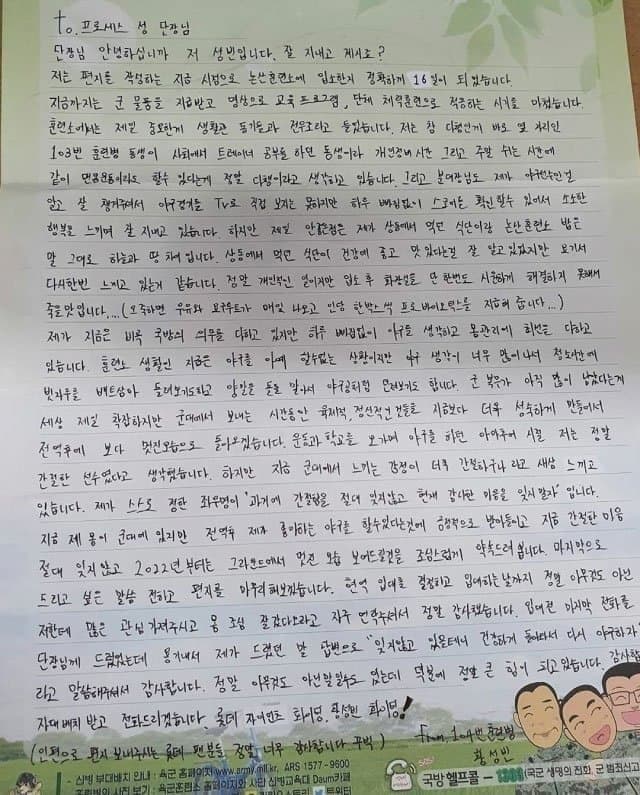 to. 프로세스 성 단장님
단장님 안녕하십니까 저 성빈입니다. 잘 지내고 계시죠?
저는 편지를 작성하는 지금 시점으로 논산훈련소에 입소한지 정확하게 16일이 되었습니다.
지금까지는 군 물품을 지급받고 영상으로 교육 프로그램, 단체 체력훈련으로 적응하는 시기를 마쳤습니다.
훈련소에서는 제일 중요한게 생활관 동기들과 전우조라고 들었습니다. 저는 참 다행인게 바로 옆 자리인
103번 훈련병 동생이 사회에서 트레이너 공부를 하던 동생이라 개인정비시간 그리고 주말 쉬는 시간에
같이 맨몸운동이라도 할수 있다는게 정말 다행이라고 생각하고 있습니다. 그리고 분대장님도 제가 야구선수인걸
알고 잘 챙겨주셔서 야구경기를 TV로 직접 보지는 못하지만 하루 빠짐없이 스코어를 확인할수 있어서 소소한
행복을 느끼며 잘 지내고 있습니다. 하지만 제일 안좋은점은 제가 상동에서 먹던 식단이랑 논산훈련소 밥은
말 그대로 하늘과 땅 차이 입니다. 상동에서 먹던 식단이 건강에 좋고 맛있다는걸 잘 알고있었지만 여기서
다시한번 느끼고 있는거 같습니다. 정말 개인적인 일이지만 입소 후 화장실을 단 한번도 시원하게 해결하지 못해서
죽을맛입니다.... (오죽하면 우유와 요구르트가 매일 나오고 인당 한박스씩 프로바이오틱스를 지급해 줍니다...)
제가 지금은 비록 국방의 의무를 다하고 있지만 하루 빠짐없이 야구를 생각하고 몸관리에 최선을 다하고
있습니다. 훈련소 생활인 지금은 야구를 아예 할수없는 상황이지만 야구 생각이 너무 많이나서 청소시간에
빗자루를 배트삼아 돌려보기도하고 양말을 돌돌 말아서 야구공처럼 던져보기도 합니다. 군 복무가 아직 많이 남았다는게
세상 제일 막막하지만 군대에서 보내는 시간동안 육체적, 정신적인것들도 지금보다 더욱 성숙하게 만들어서
전역후에 보다 멋진모습으로 돌아오겠습니다. 운동과 학교를 오가며 야구를 하던 아마추어 시절 저는 정말
간절한 선수였다고 생각했습니다. 하지만 지금 군대에서 느끼는 감정이 더욱 간절하구나 라고 새삼 느끼고
있습니다. 제가 스스로 정한 좌우명이 '과거에 간절함을 절대 잊지않고 현재 감사한 마음을 잊지 말자' 입니다.
지금 제 몸이 군대에 있지만 전역후 제가 좋아하는 야구를 할수있다는것에 긍정적으로 받아들이고 지금 간절한 마음
절대 잊지않고 2022년부터는 그라운드에서 멋진 모습 보여드릴것을 조심스럽게 약속드려 봅니다. 마지막으로
드리고 싶은 말씀 전하고 편지를 마무리해보겠습니다. 현역 입대를 결정하고 입대하는날까지 정말 아무것도 아닌
저한테 많은 관심 가져주시고 몸 조심 잘갔다오라고 자주 연락주셔서 정말 감사했습니다. 입대전 마지막 전화를
단장님께 드렸었는데 용기내서 제가 드렸던 말 답변으로 "잊지않고 있을테니 건강하게 돌아와서 다시 야구하자"
라고 말씀해주셔서 감사합니다. 정말 아무것도 아닌말일수도 있는데 덕분에 정말 큰 힘이 되고있습니다. 감사합
자대 배치 받고 전화드리겠습니다. 롯데 자이언츠 화이팅, 황성빈 화이팅!
(인편으로 편지 보내주시는 롯데 팬분들 정말 너무 감사합니다 꾸벅) From. 104번 훈련병
황성빈
· 신병 부대배치 안내 : 육군 홈페이지 www.army.mil.kr, ARS 1577 - 9600
육군훈련소 홈페이지와 사단 신병교육대 Daum카페
트위터
SOS!
국방헬프콜 - 1303 (국군 생명의 전화, 군 범죄신고